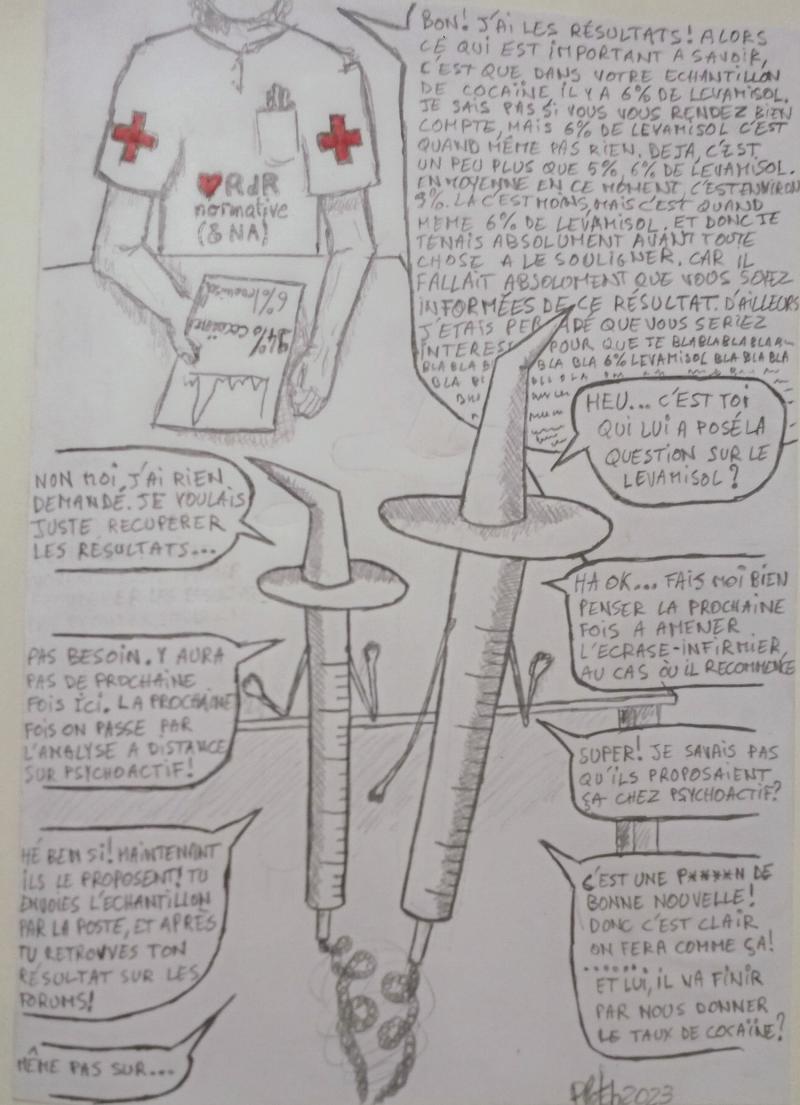 BON! J'AI LES RÉSULTATS! ALORS
CE QUI EST IMPORTANT A SAVOIR,
C'EST QUE DANS VOTRE ECHANTILLON
DE COCAÏNE IL Y A 6% DE LEVAMISOL.
JE SAIS PAS SI VOUS VOUS RENDEZ BIEN
COMPTE, MAIS 6% DE LEVAMISOL C'EST
QUAND MÊME PAS RIEN. DEJA, C'EST
UN PEU PLUS QUE 5%, 6% DE LEVAMISOL.
EN MOYENNE EN CE MOMENT, C'EST ENVIRON
9%. LA C'EST MOINS, MAIS C'EST QUAND
MEME 6% DE LEVAMISOL. ET DONC JE
TENAIS ABSOLUMENT AVANT TOUTE
CHOSE A LE SOULIGNER. CAR IL
FALLAIT ABSOLOMENT QUE VOUS SOYEZ
INFORMÉES DE CE RÉSULTAT. D'AILLEURS
J'ETAIS QUE VOUS SERIEZ
POUR QUE JE BLABLABLABLA
BLA BLA BLA BLA 6% LEVAMISOL BLA BLA BLA
BLA
♥ RdR
normative
(& NA!
6% levamisol
94% cocaïne
HEU... C'EST TOI
QUI LUI A POSÉ LA
QUESTION SUR LE
LEVAMISOL?
NON MOI J'AI RIEN
DEMANDÉ. JE VOULAIS
JUSTE RECUPERER
LES RÉSULTATS...
HA OK... FAIS MOI BIEN
PENSER LA PROCHAINE
FOIS A AMENER
L'ECRASE-INFIRMIER,
AU CAS OÙ IL RECOMMENCE
PAS BESOIN. Y AURA
PAS DE PROCHAINE
FOIS ICI. LA PROCHAINE
FOIS ON PASSE PAR
L'ANALYSE A DISTANCE
SUR PSYCHOACTIF!
SUPER! JE SAVAIS PAS
QU'ILS PROPOSAIENT
ÇA CHEZ PSYCHOACTIF?
HÉ BEN SI! MAINTENANT
ILS LE PROPOSENT! TU
ENVOIES L'ECHANTILLON
PAR LA POSTE, ET APRÈS
TU RETROUVES TON
RÉSULTAT SUR LES
FORUMS!
C'EST UNE P****N DE
BONNE NOUVELLE!
DONC C'EST CLAIR
ON FERA COMME ÇA!
.......
ET LUI, IL VA FINIR
PAR NOUS DONNER
LE TAUX DE COCAÏNE?
MÊME PAS SUR...
2023